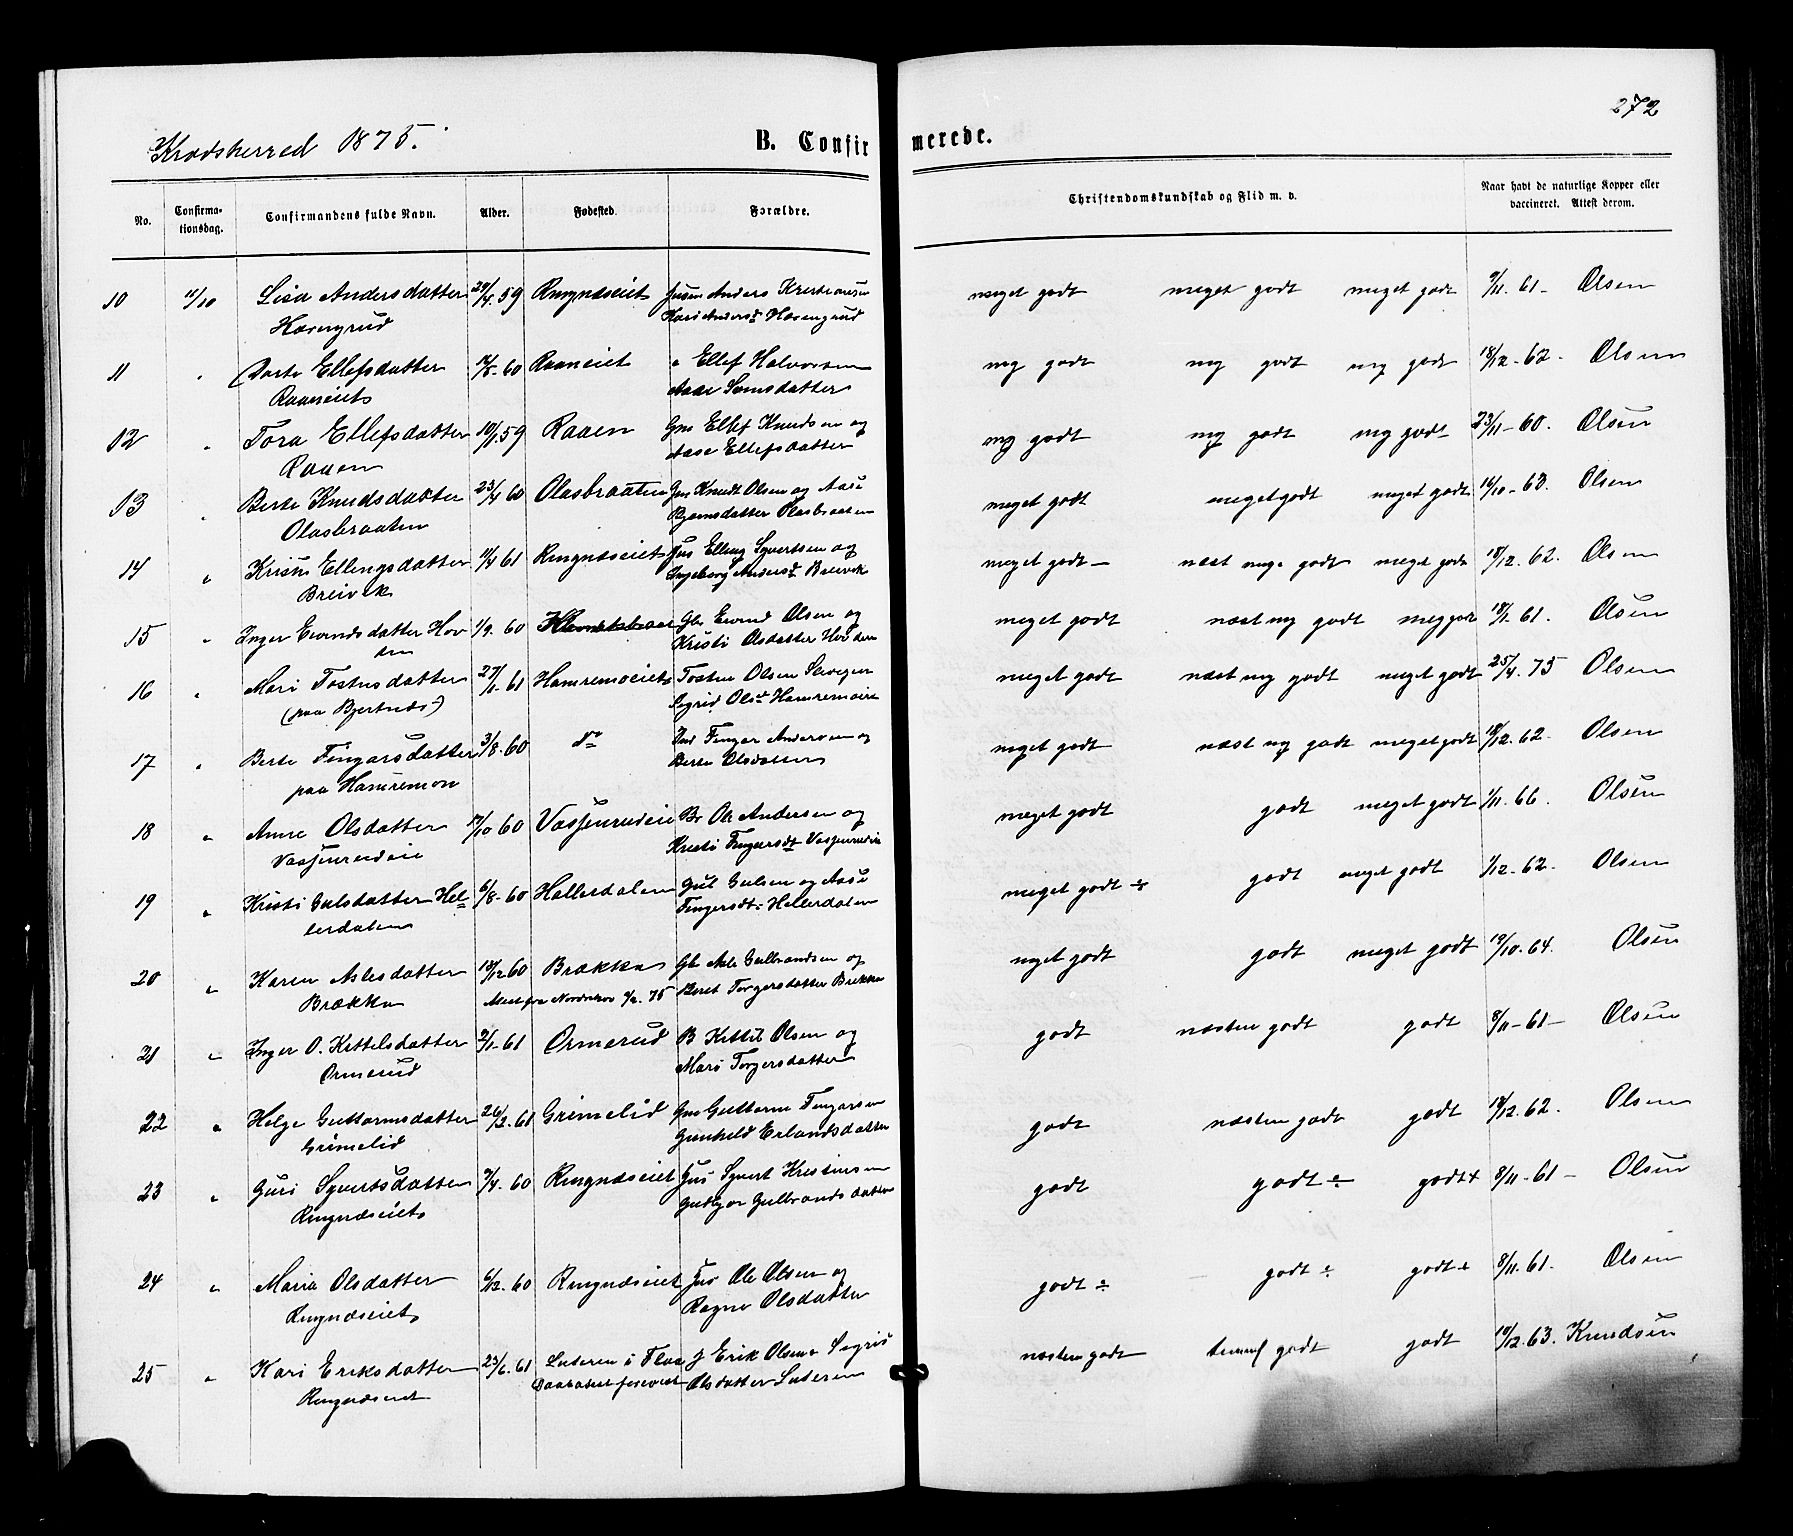 272
Krødsherred 1875.
B. Confirmerede.
No. Confirmationsdag. Confirmandens fulde Navn. Alder. Fødested. Forældre. Christendomskundskab og Flid m. v. Naar havt de naturlige Kopper eller vaccineret. Attest derom.
10 11/10 Lisa Andersdatter 24/4. 59 Ringnæseiet Anders Kristiansen meget godt meget godt meget godt 9/11. 61 - Olsen
Havngrud Kari Andersd Havengrud
11 " Dorte Ellefsdatter 60 Raaneiet Ellef Halvorsen mg godt mg godt mg godt 18/12 - 62. Olsen
Raaneiet
12 " Tora Ellefsdatter 10/1 59 Raaen Gm Ellef Knudsen og mg godt mg godt mg godt 23/11 - 60. Olsen
Raaen Aase Ellefsdatter
13 " Berte Knudsdatter 23/4 60 Olasbraaten Knudt Olsen og Aase meget godt meget godt meget godt 16/10 - 63. Olsen
Olasbraaten Bjørnsdatter Olasbraaten
14 " Ellingsdatter 11/4 61 Ringnæseiet Elling Syvertsen og meget godt - næst mege godt meget godt 18/12. 62. Olsen
Breivik Ingeborg Andersd Breivik
15 " Inger Eivindsdatter Hov 1/9. 60 Gbr Eivind Olsen og meget godt næst mg godt meg godt 18/1. 61. Olsen
den Kristi Olsdatter Hovden
16 " Mari Tostensdatter 27/1. 61 Hamremoeiet Tosten Olsen meget godt næst mg godt meget godt 25/4. 75 Olsen
(paa Bjertnæs) Sigrid Olsd Hamremoeie
17 " Berte Fingarsdatter 3/8. 60 do Ind Fingar Andersen og meget godt næst mg godt meget godt 18/12. 62 - Olsen
paa Hamremon Berte Olsdatter
18 " Anne Olsdatter 60 Vassenrudeie Ole Andersen og meget godt godt meget godt 1/11. 66. Olsen
Vassenrudeie Kristi Fingarsdt Vassenrudeie
19 " Kristi Gulsdatter Hel= 6/8 - 60 Hallerdalen Gul Gulsen og Aase meget godt ÷ godt meget godt 1/12. 62. Olsen
lerdalen Fingersdt. Hellerdalen
20 " Karen Aslesdatter 18/12 60 Brækka Gb Asle Gulbrandsen og meget godt godt meget godt 19/10. 64. Olsen
Brækka Attest fra Norderhov 75 Beret Torgersdatter Brekka
21 " Inger O. Kettelsdatter 2/1 - 61 Ormerud B Kittil Olsen og godt næsten godt godt 8/11 - 61 - Olsen
Ormerud Mari Torgersdatter
22 " Helge Guttormsdatter 26/2. 61 Grimelid Gm Guttorm Fingarsen godt næsten godt godt 18/12. 62. Olsen
Grimelid Gunhild Erlandsdatter
23 " Guri Syvertsdatter 60 Ringnæseiet Syvert Kristensen godt godt ÷ godt+ 8/11 - 61 - Olsen
Ringnæseiet Gulbrandsdatter
24 " Maria Olsdatter 6/12. 60 Ringnæseiet Ole Olsen og godt ÷ godt ÷ godt + 8/11. 61. Olsen
Ringnæseiet Ragne Olsdatter
25 " Kari Eriksdatter 23/6. 61 i Flaa Erik Olsen Sigrid næsten godt godt godt 18/12. 63. Knudsen
Ringnæseiet Daabsattest forevist Olsdatter